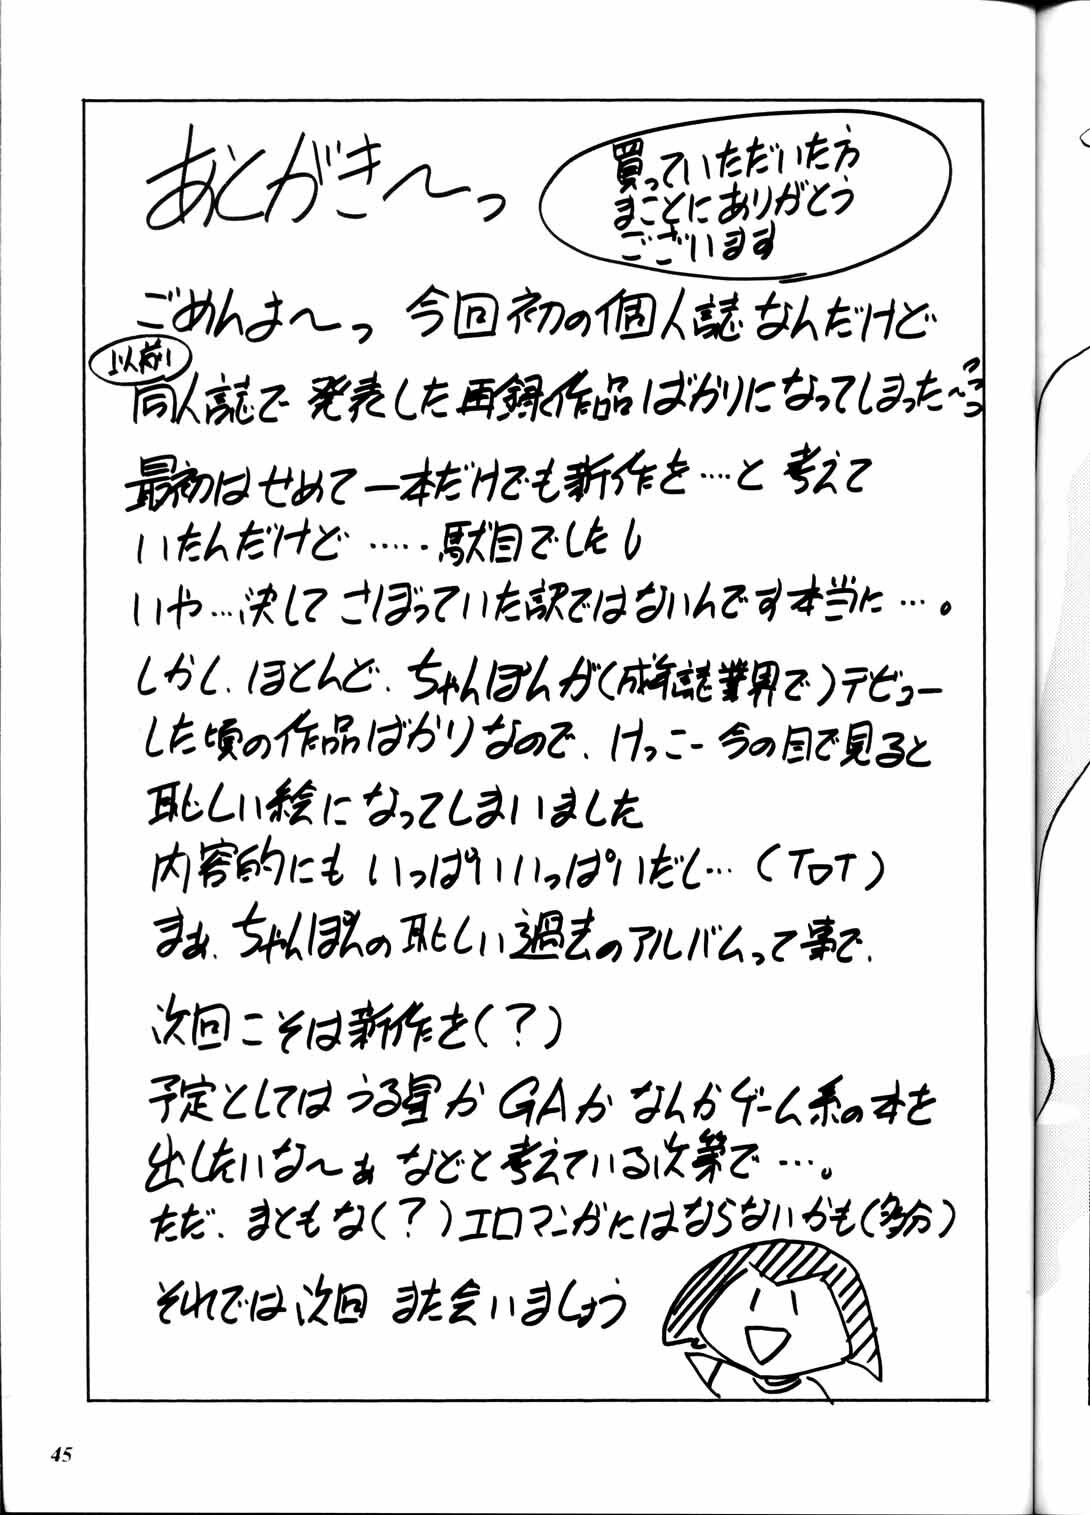 あとがき〜っ
買っていただいた方
まことにありがとう
ございます
ごめんよ〜っ 今回初の個人誌なんだけど
以前
同人誌で発表した再録作品ばかりになってしまった〜っっっ
最初はせめて一本だけでも新作を‥‥と考えて
いたんだけど‥‥‥駄目でしたし
いや…決してさぼっていた訳ではないんです本当に…。
しかし、ほとんど、ちゃんぽんが(成年誌業界で)デビュー
した頃の作品ばかりなので、けっこー今の目で見ると
恥しい絵になってしまいました
内容的にもいっぱいいっぱいだし…(TロT)
まぁ、ちゃんぽんの恥しい過去のアルバムって事で、
次回こそは新作を(?)
予定としてはうる星かGAかなんかゲーム系の本を
出したいな〜ぁなどと考えている次第で…。
ただ、まともな(?)エロマンガにはならないかも(多分)
それでは次回また会いましょう
45